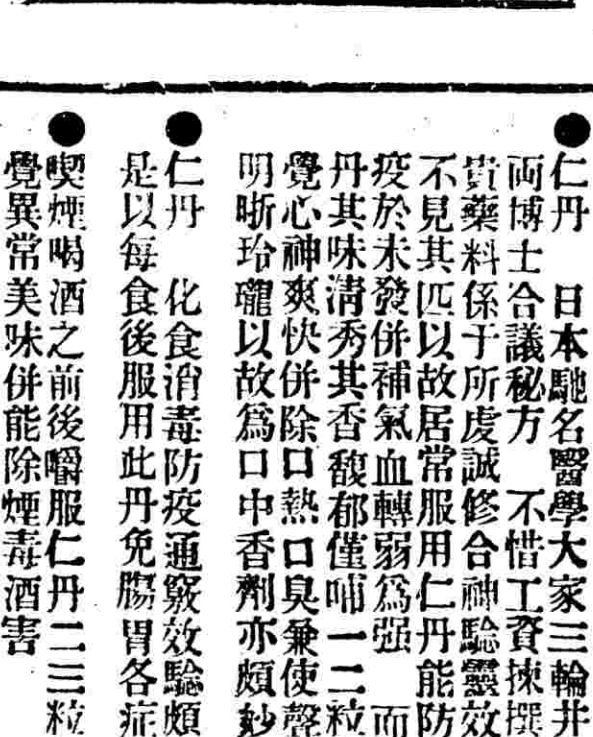 ●仁丹　日本馳名醫學大家三輪井
両博士合議秘方　不惜工資揀撰
貴藥料係于所虔誠修合神驗靈效
不見其匹以故居常服用仁丹能防
疫於未發併補氣血轉弱爲强　而
丹其味淸秀其香馥郁僅哺一二粒
覺心神爽快併除口熱口臭兼使聲
明晰玲瓏以故爲口中香劑亦頗妙
●仁丹　化食消毒防疫通竅效驗頗
是以每食後服用此丹免腸胃各症
●喫煙喝酒之前後嚼服仁丹二三粒
覺異常美味併能除煙毒酒害